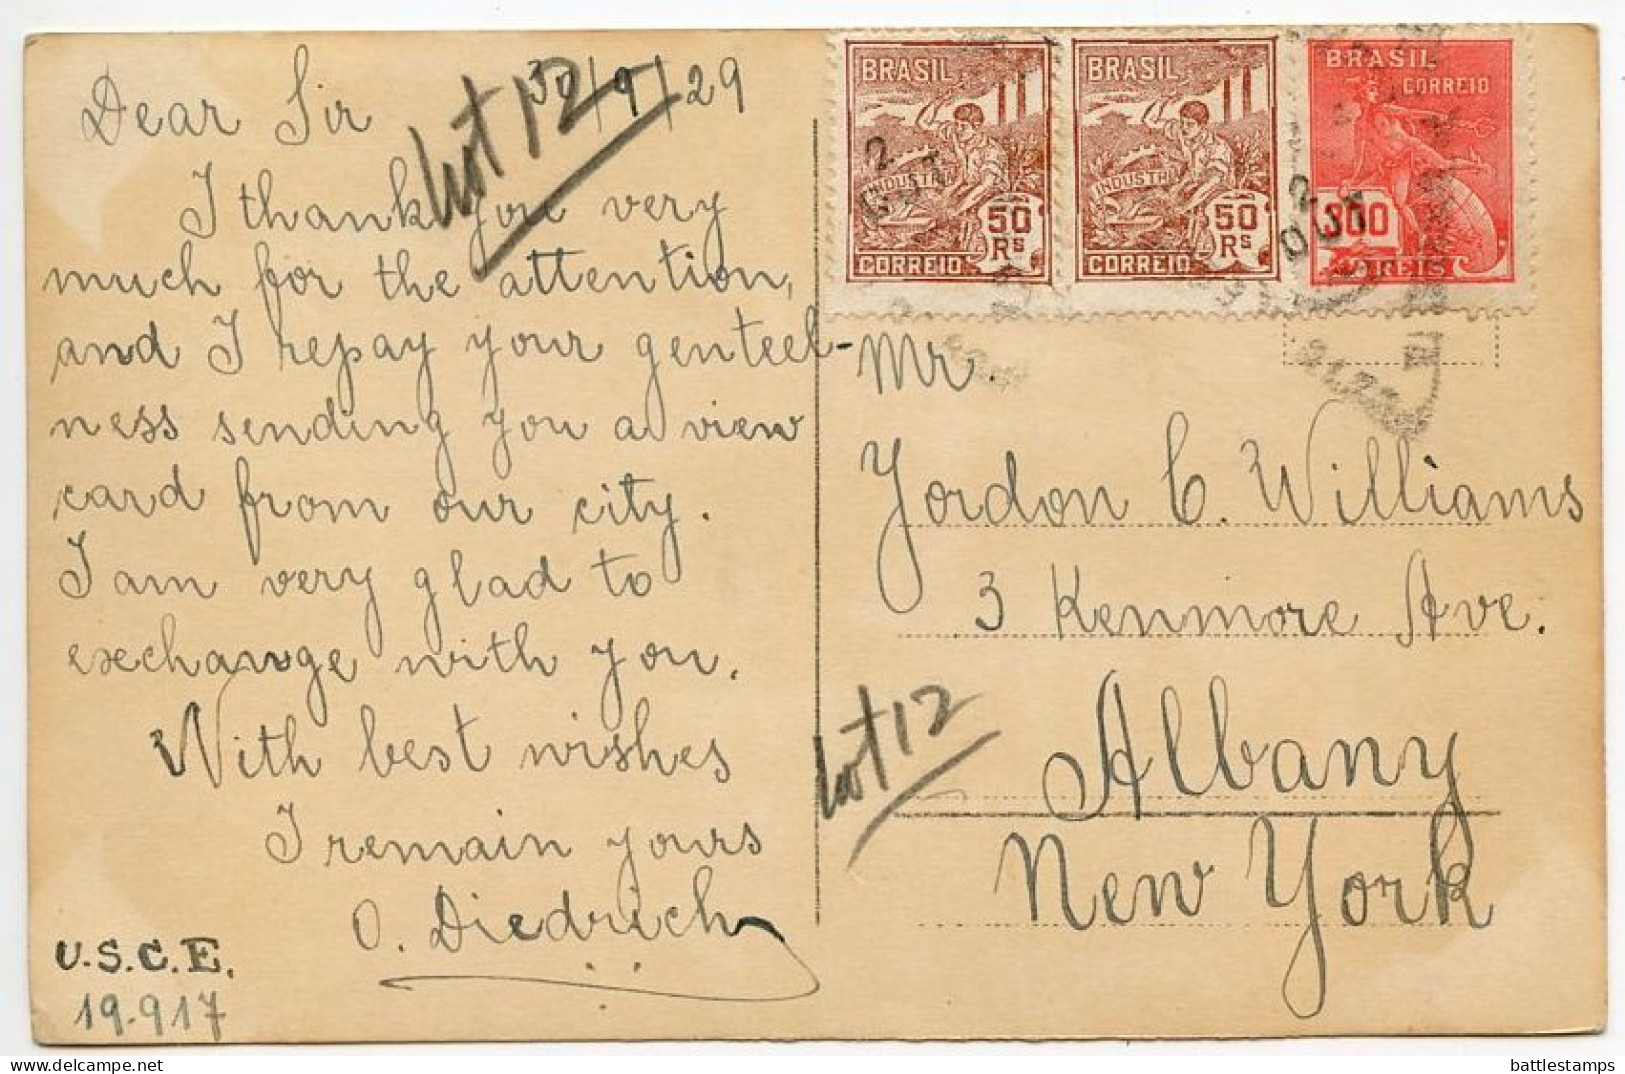 Dear Sir
30/9/29
Lot 12
I thank you very
much for the attention,
and I repay your genteel-
ness sending you a view
card from our city.
I am very glad to
exchange with you.
With best wishes
I remain yours
O. Diedrich
U.S.C.E.
19.917
BRASIL
INDUSTRIA
50 RS
CORREIO
BRASIL
INDUSTRIA
50 RS
CORREIO
BRASIL
CORREIO
300
REIS
2
OUT
Mr.
Yordon C. Williams
3 Kenmore Ave.
Albany
New York
Lot 12
delcampe.net
battlestamps